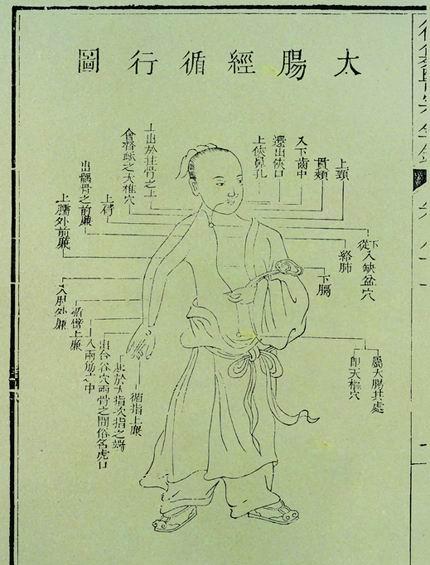 太腸經循行圖
上頸
貫頰
入下齒中
還出俠口
上俠鼻孔
上出於柱骨之上
會督脈之大椎穴
出髃骨之前廉
上肘
上臑外前廉
從下入缺盆穴
絡肺
下膈
屬大腸其處
即天樞穴
循指上廉
起於大指次指之端
出合谷穴兩骨之間俗名虎口
入兩筋之中
循臂上廉
入肘外廉